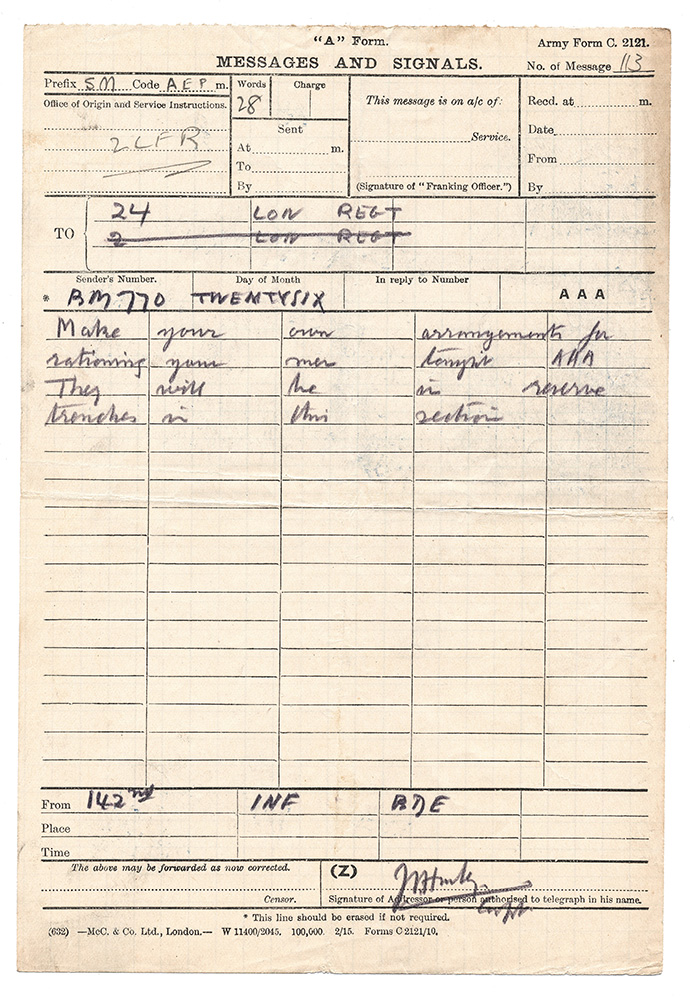 "A" Form.
Army Form C. 2121.
MESSAGES AND SIGNALS.
No. of Message 113
Prefix SM Code AEP m.
Words
28
Charge
This message is on a/c of:
Recd. at m.
Office of Origin and Service Instructions.
2LFR
Sent
At m.
To
By
Service.
(Signature of "Franking Officer.")
Date
From
By
TO
24 LON REGT
2 LON REGT
Sender's Number.
Day of Month
In reply to Number
* BM770 TWENTYSIX AAA
Make your own arrangements for
rationing your men tonight AAA
They will be in reserve
trenches in this section
From 142nd INF BDE
Place
Time
The above may be forwarded as now corrected.
(Z)
Censor.
Signature of Addressor or person authorised to telegraph in his name.
Capt.
* This line should be erased if not required.
(632) —McC. & Co. Ltd., London.— W 11400/2045. 100,000. 2/15. Forms C 2121/10.